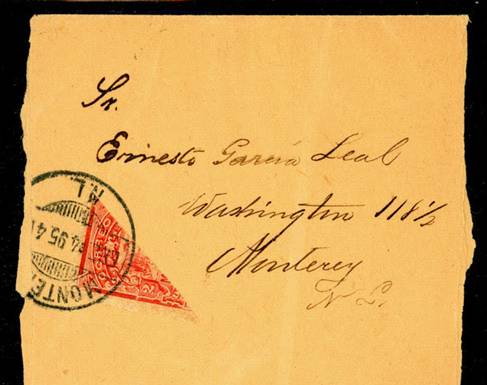 Sr.
Ernesto García Leal
Washington 118½
Monterey
N. L.
MONTE
N.L.
4.95.4